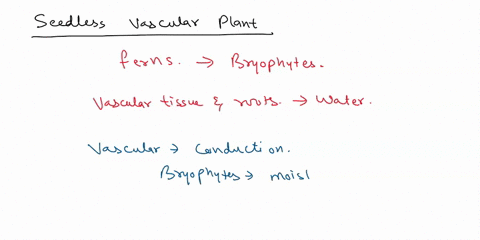 Seedless Vascular Plant
ferns. → Bryophytes.
Vascular tissue & roots. → Water.
Vascular → Conduction.
Bryophytes → moisl